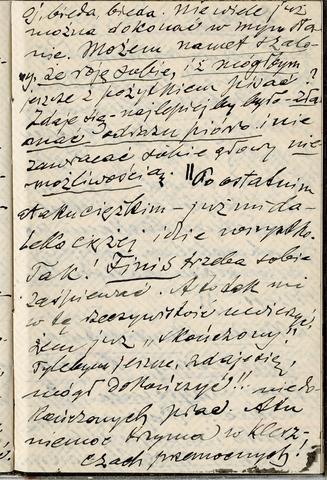 Oj, bieda, bieda. Niewiele już
można dokonać w mym sta-
nie. Możem nawet szalo-
ny, że roję sobie, iż mógłbym
jeszcze z pożytkiem pisać?
Zdaje się – najlepiej by było – zła-
mać odrazu pióro i nie
zawracać sobie głowy nie-
możliwością. || Po ostatnim
ataku ciężkim – już mi da-
leko ciężej idzie wszystko.
Tak! Finis trzeba sobie
zaśpiewać. A to tak mi
w tę rzeczywistość nie wierzyć,
żem już „skończony"!
Tylebym jeszcze, zdaje się,
mógł dokończyć!! niedo-
kończonych prac. A tu
niemoc trzyma w klesz-
czach przemocnych!